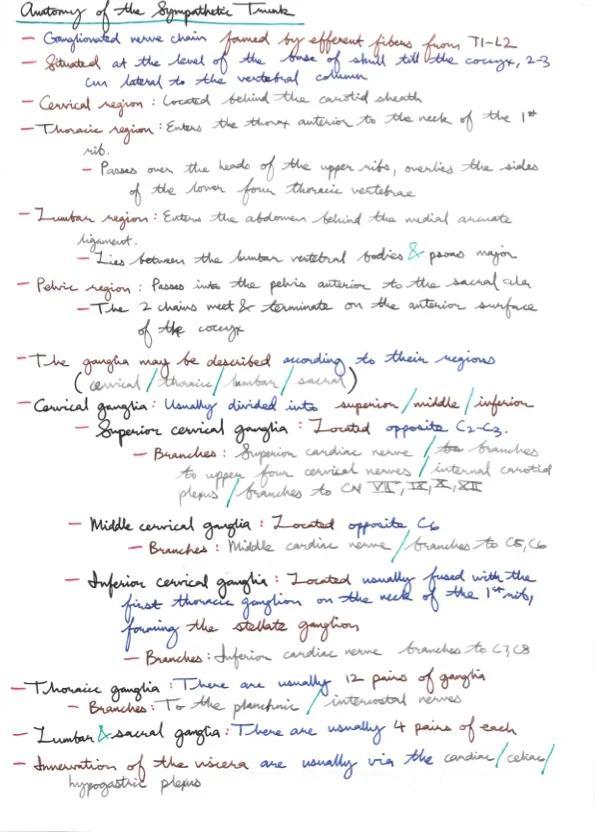 Anatomy of the Sympathetic Trunk
- Ganglionated nerve chain formed by efferent fibers from T1-L2
- Situated at the level of the base of skull till the coccyx, 2-3
cm lateral to the vertebral column
- Cervical region : Located behind the carotid sheath
- Thoracic region : Enters the thorax anterior to the neck of the 1st
rib.
- Passes over the heads of the upper ribs, overlies the sides
of the lower four thoracic vertebrae
- Lumbar region : Enters the abdomen behind the medial arcuate
ligament.
- Lies between the lumbar vertebral bodies & psoas major
- Pelvic region : Passes into the pelvis anterior to the sacral ala
- The 2 chains meet & terminate on the anterior surface
of the coccyx
- The ganglia may be described according to their regions
(cervical / thoracic / lumbar / sacral)
- Cervical ganglia : Usually divided into superior / middle / inferior
- Superior cervical ganglia : Located opposite C2-C3.
- Branches : Superior cardiac nerve / branches
to upper four cervical nerves / internal carotid
plexus / branches to CN VII, IX, X, XII
- Middle cervical ganglia : Located opposite C6
- Branches : Middle cardiac nerve / branches to C5, C6
- Inferior cervical ganglia : Located usually fused with the
first thoracic ganglion on the neck of the 1st rib,
forming the stellate ganglion
- Branches : Inferior cardiac nerve branches to C7, C8
- Thoracic ganglia : There are usually 12 pairs of ganglia
- Branches : To the planchnic / intercostal nerves
- Lumbar & sacral ganglia : There are usually 4 pairs of each
- Innervation of the viscera are usually via the cardiac / celiac /
hypogastric plexus